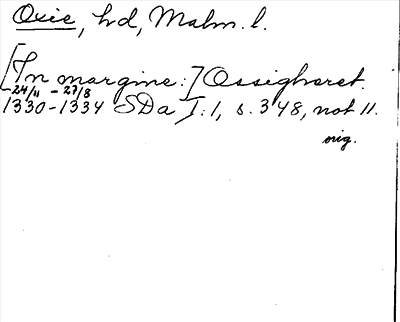 Oxie, hd, Malm. l.
[In margine:] Ossigheret.
24/11 - 27/8
1330-1334 SDa I:1, s. 348, not 11.
orig.